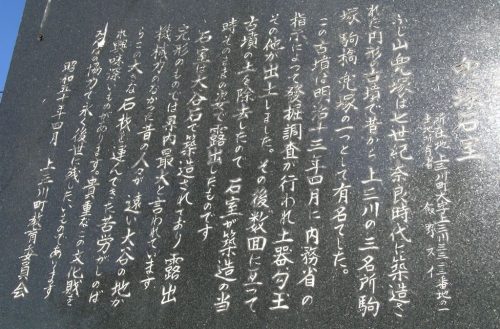 兜塚石室
所在地 上三川町大字上三川三一三三番地の一
土地所有者
ふじ山兜塚は七世紀奈良時代に築造さ
れた円形の古墳で昔から上三川の三名所駒
塚駒橋兜塚の一つとして有名でした。
この古墳は明治十三年四月に内務省の
指示によって発掘調査が行われ土器勾玉
その他が出土しました。その後数回に亘って
古墳の土を除去したので石室が築造の当
時のままの姿で露出したものです
石室は大谷石で築造されており露出
完形のものでは県内最大と言われています
機械力のなかった昔の人々が遠い大谷の地か
らこの大きな石材を運んできた苦労がしのば
れ興味深いものがあります。貴重なこの文化財を
みんなの協力で永く後世に残したいものであります
昭和五十年四月 上三川町教育委員会